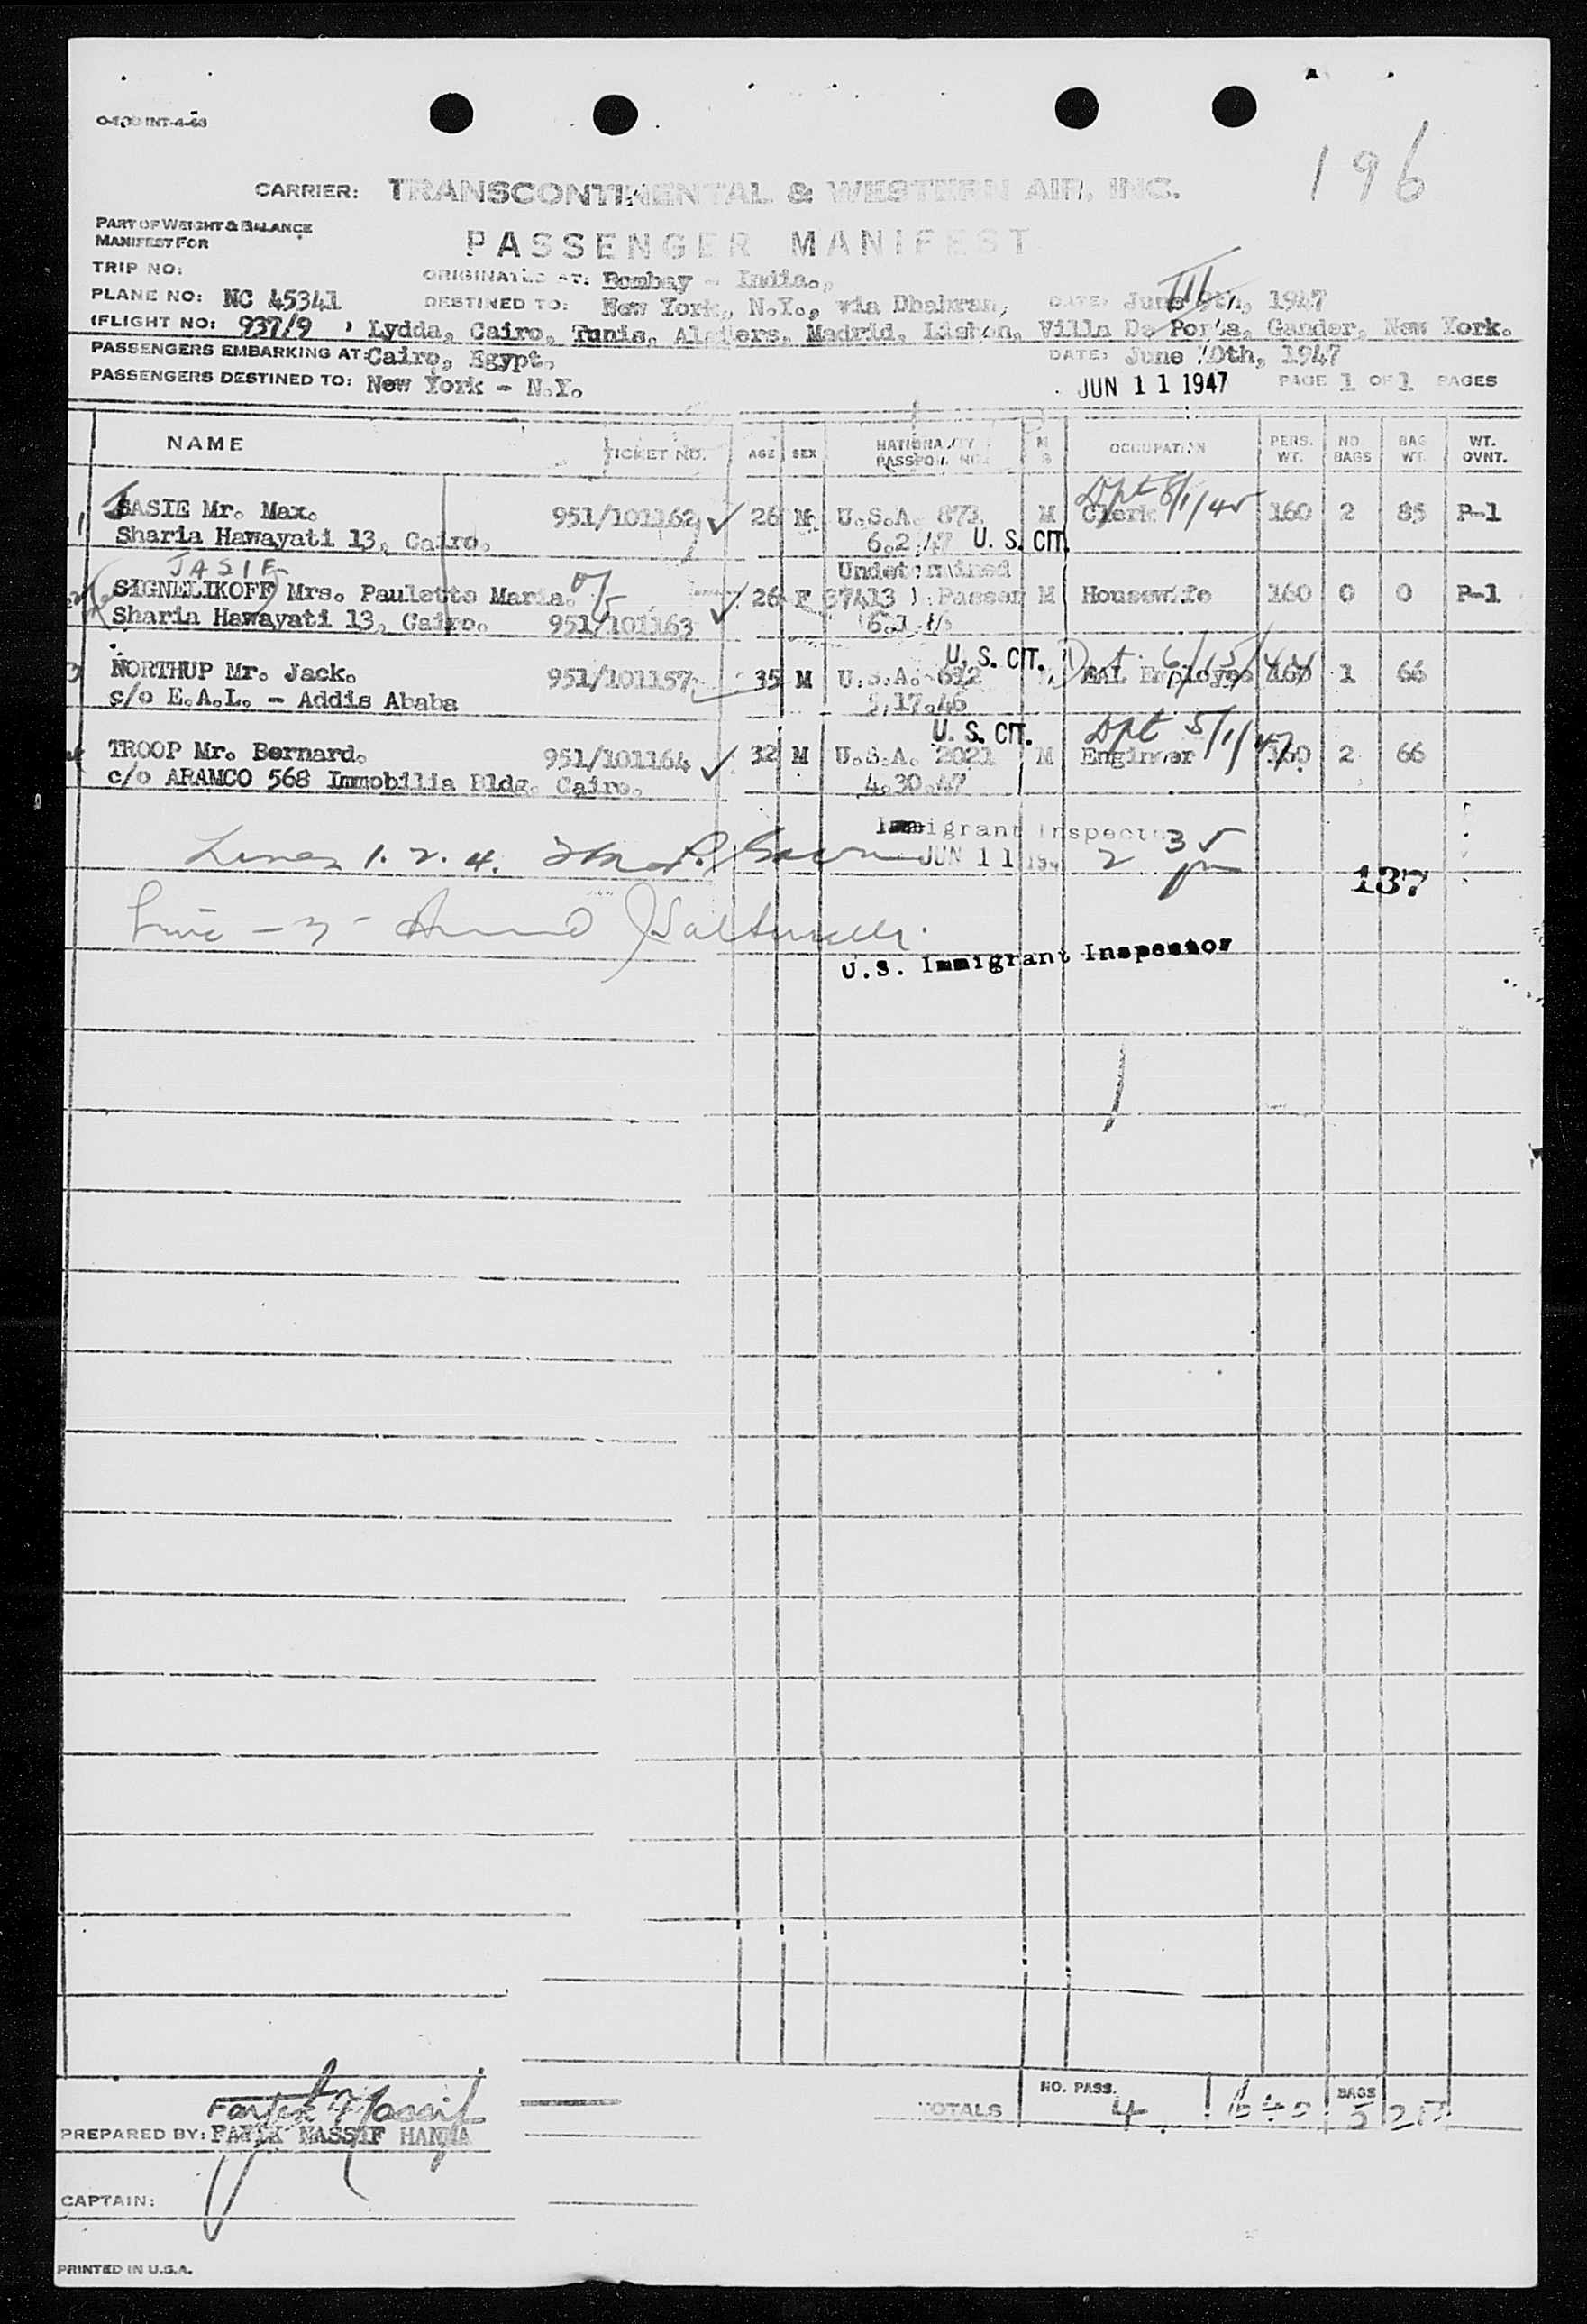 196
CARRIER: TRANSCONTINENTAL & WESTERN AIR, INC.
PART OF WEIGHT & BALANCE
MANIFEST FOR
PASSENGER MANIFEST
TRIP NO:
ORIGINATED AT: Bombay - India.,
PLANE NO: NC 45341
DESTINED TO: New York, N.Y., via Dhahran,
DATE: June 1947
(FLIGHT NO: 937/9 ) Lydda, Cairo, Tunis, Algiers, Madrid, Lisbon, Villa De Porta, Gander, New York.
PASSENGERS EMBARKING AT: Cairo, Egypt.
DATE: June 10th, 1947
PASSENGERS DESTINED TO: New York - N.Y.
JUN 11 1947
PAGE 1 OF 1 PAGES
NAME TICKET NO. AGE SEX NATIONALITY PASSPORT NO. M S OCCUPATION PERS. WT. NO BAGS BAG WT. WT. OVNT.
Dpt 8/1/45
1 JASIE Mr. Max. 951/101162 ✓ 26 M U.S.A. 873 M Clerk 160 2 85 P-1
Sharia Hawayati 13, Cairo. 6.2.47 U. S. CIT.
JASIE Undetermined
SIGNELIKOFF Mrs. Paulette Maria. ✓ 26 F 37413 Passer M Housewife 160 0 0 P-1
Sharia Hawayati 13, Cairo. 951/101163
U. S. CIT.
3 NORTHUP Mr. Jack. 951/101157 35 M U.S.A. 612 EAL Employee 160 1 66
c/o E.A.L. - Addis Ababa 17.46
U. S. CIT. Dpt 5/1/47
4 TROOP Mr. Bernard. 951/101164 ✓ 32 M U.S.A. 2021 M Engineer 160 2 66
c/o ARAMCO 568 Immobilia Bldg. Cairo. 4.30.47
Immigrant Inspector
Lines 1. 2. 4. JUN 11 2 35 pm
137
Line - 3 -
U.S. Immigrant Inspector
TOTALS NO. PASS. 4 640 BAGS 5
PREPARED BY: NASSIF HANNA
CAPTAIN:
PRINTED IN U.S.A.